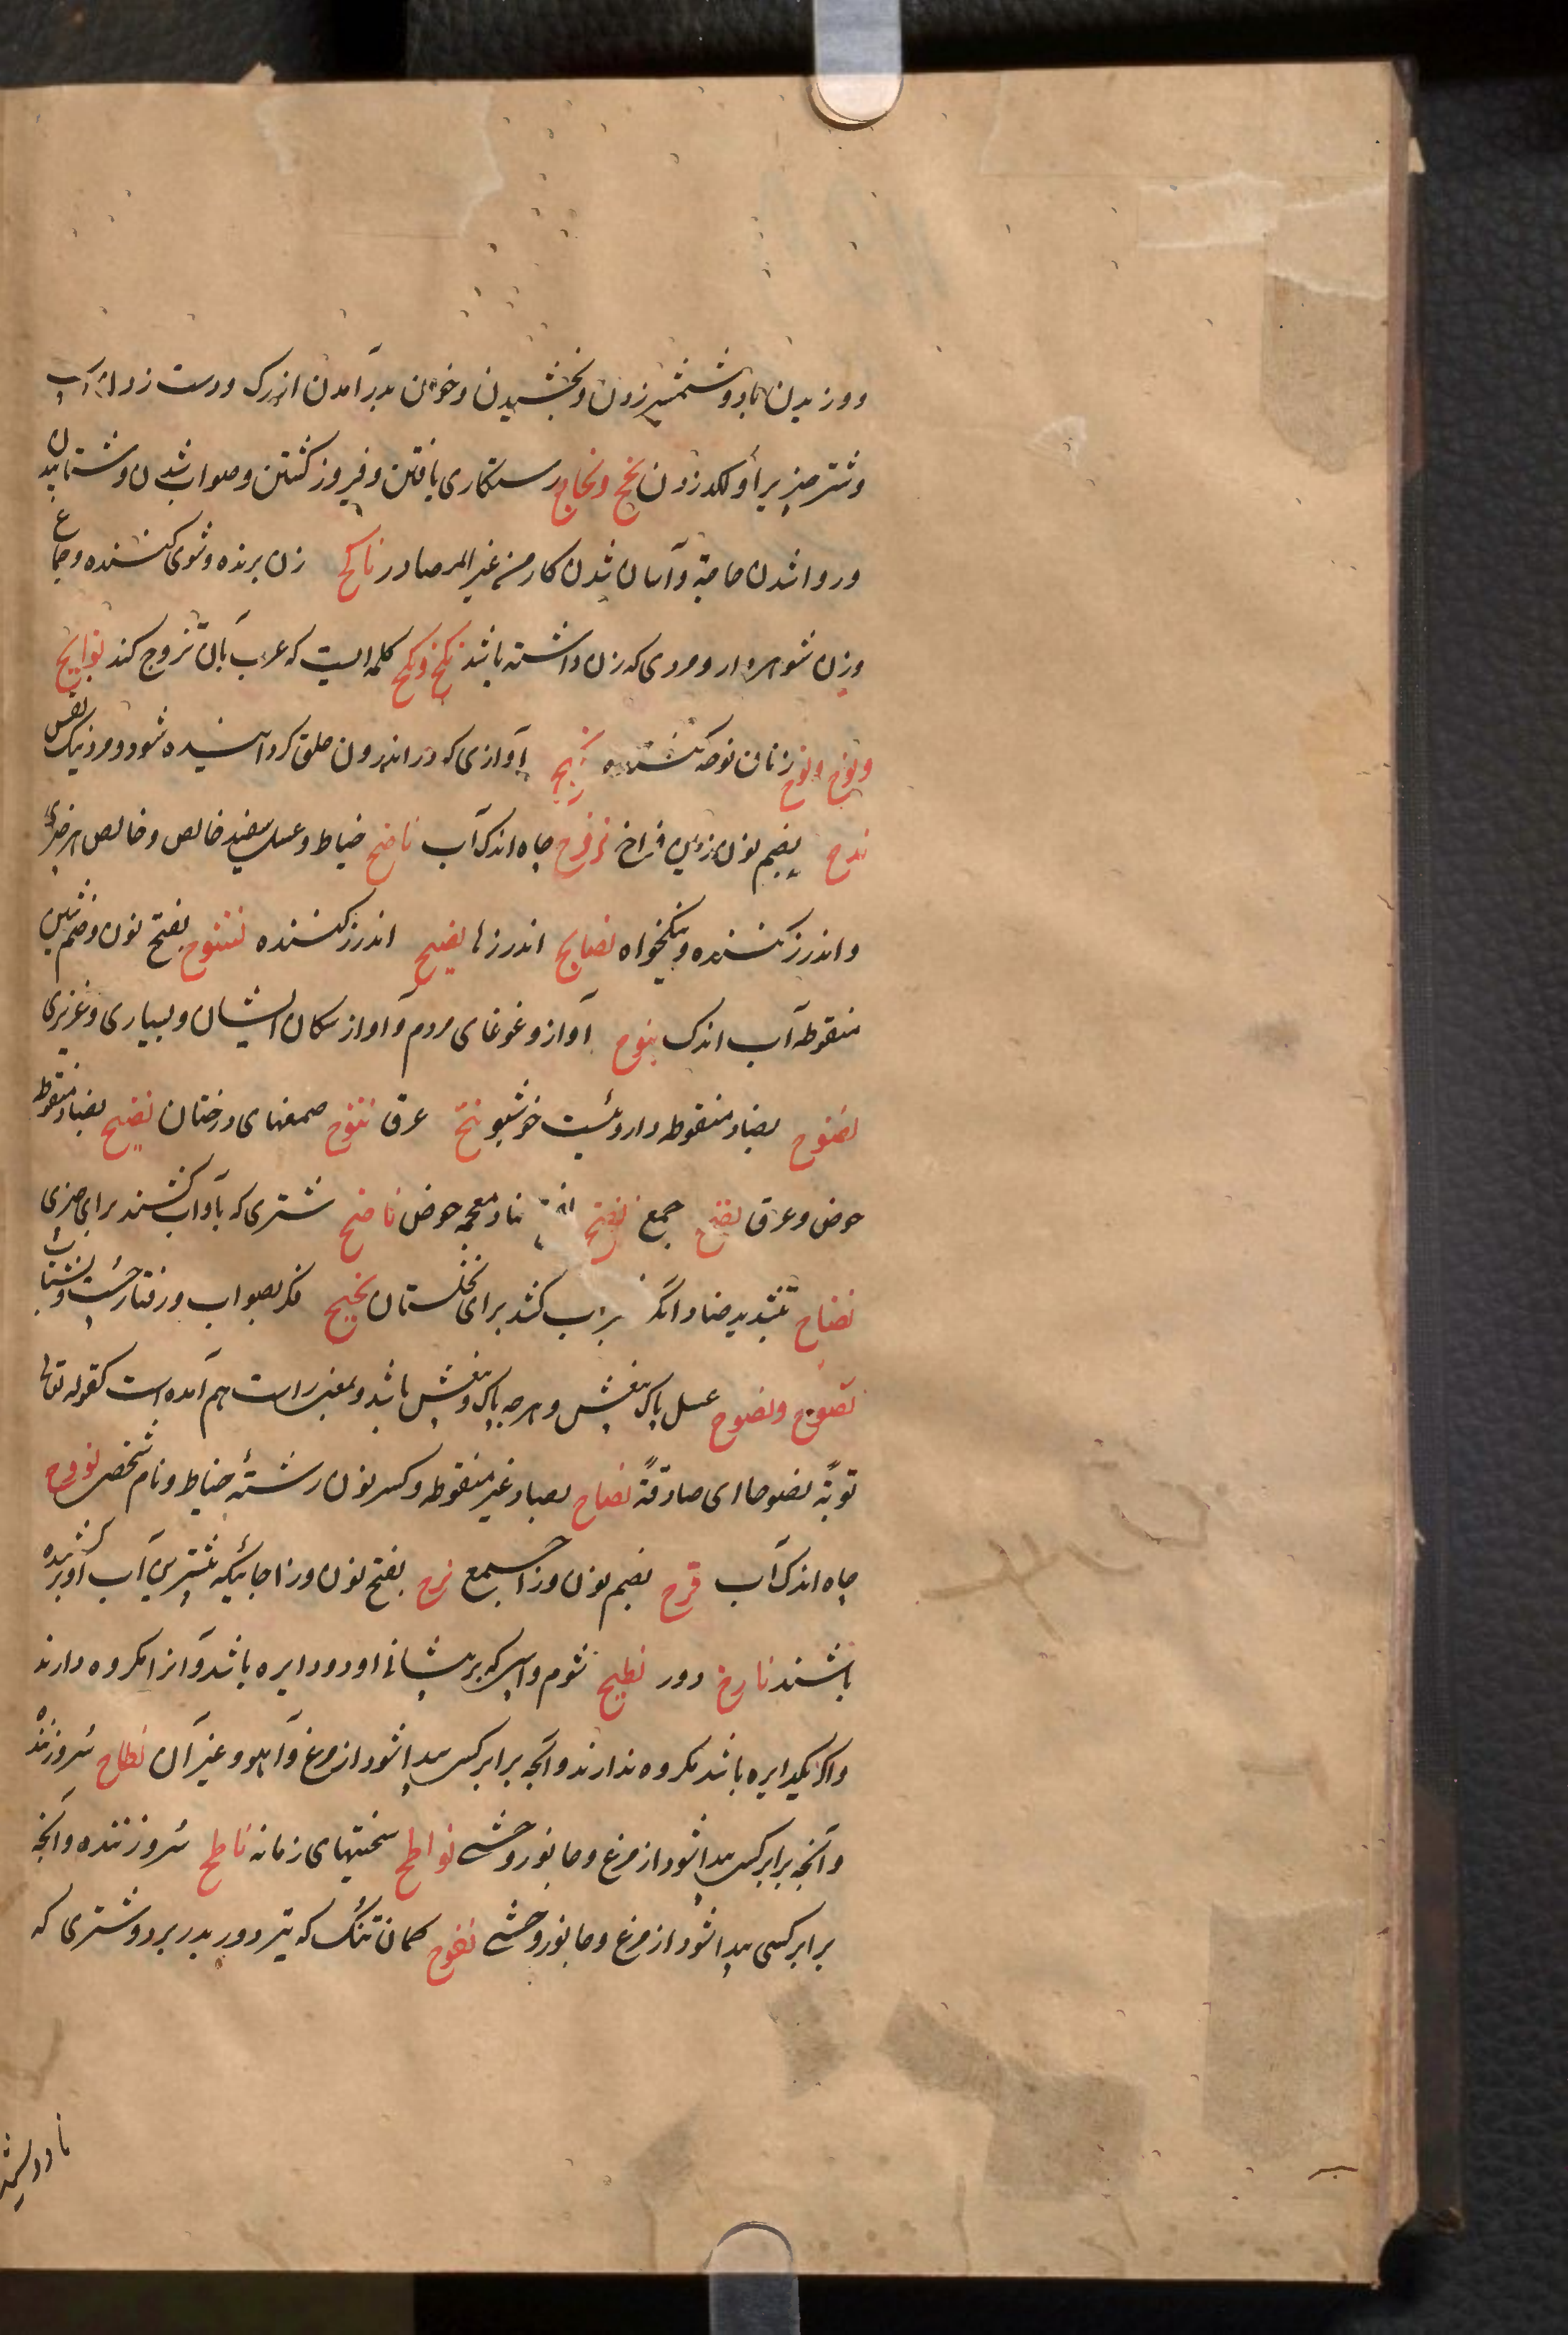 ووزیدن باد و شمشیر زدن و بخشیدن و خون بدر آمدن از رک و دست زدن
و شتر مزیر را و لکد زدن نجح و نجاح رستکاری یافتن و فیروز کشتن و صواب شدن و شتابیدن
و روا شدن حاجة و آسان شدن کار من غیر المصادر ناکح زن برنده و شوی کننده و جماع
وزن شوهردار و مردی که زن داشته باشد نکح و نکح کلمه ایست که عرب بآن تزوج کند نوایح
و نوح و نوح زنان نوحه کننده نحیح آوازی که در اندرون حلق کردانیده شود و مرد نیک نفس
ندح بضم نون زمین فراخ نزوح چاه اندک آب ناصح خیاط و عسل سفید خالص و خالص هر چیزی
و اندرز کننده و نیکخواه نصایح اندرزها نصیح اندرز کننده نشوح بفتح نون و ضم شین
منقوطه آب اندک نبوح آواز و غوغای مردم و آواز سکان ایشان و بسیاری و عزیزی
نضوح بضاد منقوطه داروئیست خوشبو نتح عرق نتوح صمغهای درختان نضیح بضاد منقوطه
حوض و عرق نضح جمع نضح ضاد معجمه حوض ناضح شتری که باو آب کشند برای چیزی
نضاح بتشدید ضاد آنکه آب کشد برای نخلستان نجیح فکر بصواب و رفتار چست و شتاب
نصوح و نصوح عسل پاک بیغش و هرچه پاک و بیغش باشد و بمعنی راست هم آمده است کقوله تعالی
توبة نصوحا ای صادقة نصاح بصاد غیر منقوطه و کسر نون رشتۀ خیاط و نام شخصی نزوح
چاه اندک آب نزح بضم نون و زا جمع نزح بفتح نون و زا جائیکه بیشترین آب او کشیده
باشند نازح دور نطیح شوم و اسپی که بر پیشانی او دو دایره باشد و آنرا مکروه دارند
و اکر یکدایره باشد مکروه ندارند و آنچه برابر کسی پیدا شود از مرغ و آهو و غیر آن نطاح سروزننده
و آنچه برابر کسی پیدا شود از مرغ و جانور وحشی نواطح سختیهای زمانه ناطح سروزننده و آنچه
برابر کسی پیدا شود از مرغ و جانور وحشی نفوح کمان تنک که تیر دور بدر برد و شتری که